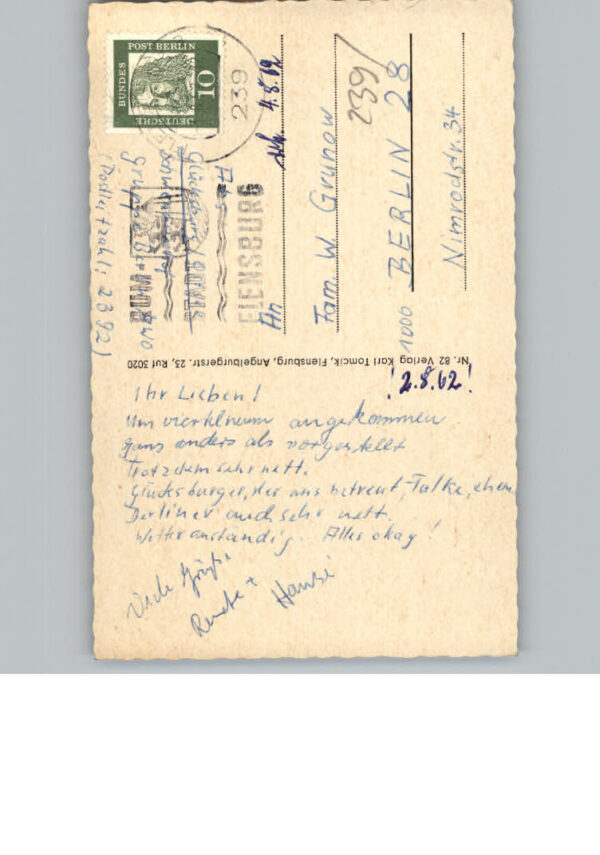 DEUTSCHE
BUNDES
POST BERLIN
10
239
RUM
FLENSBURG
Abs.
Glücksburg/Ostsee
Gruppe Berlin AWO
(Postleitzahl: 2392)
4.8.62
An
Fam. W. Grunow
239/
1000 BERLIN 28
Nimrodstr. 34
Nr. 82 Verlag Karl Tomcik, Flensburg, Angelburgerstr. 23, Ruf 3020
!2.8.62!
Ihr Lieben!
Um viertelneun angekommen
ganz anders als vorgestellt.
Trotzdem sehr nett.
Glücksburger, der uns betreut, Falke, ehem
Berliner auch sehr nett.
Wetter anständig. Alles okay!
Viele Grüße
Renate +
Hansi